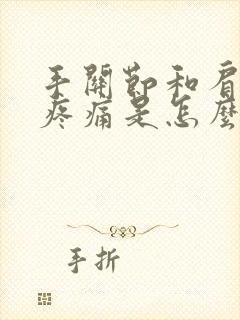 手關節和肩
疼痛是怎麼
手折